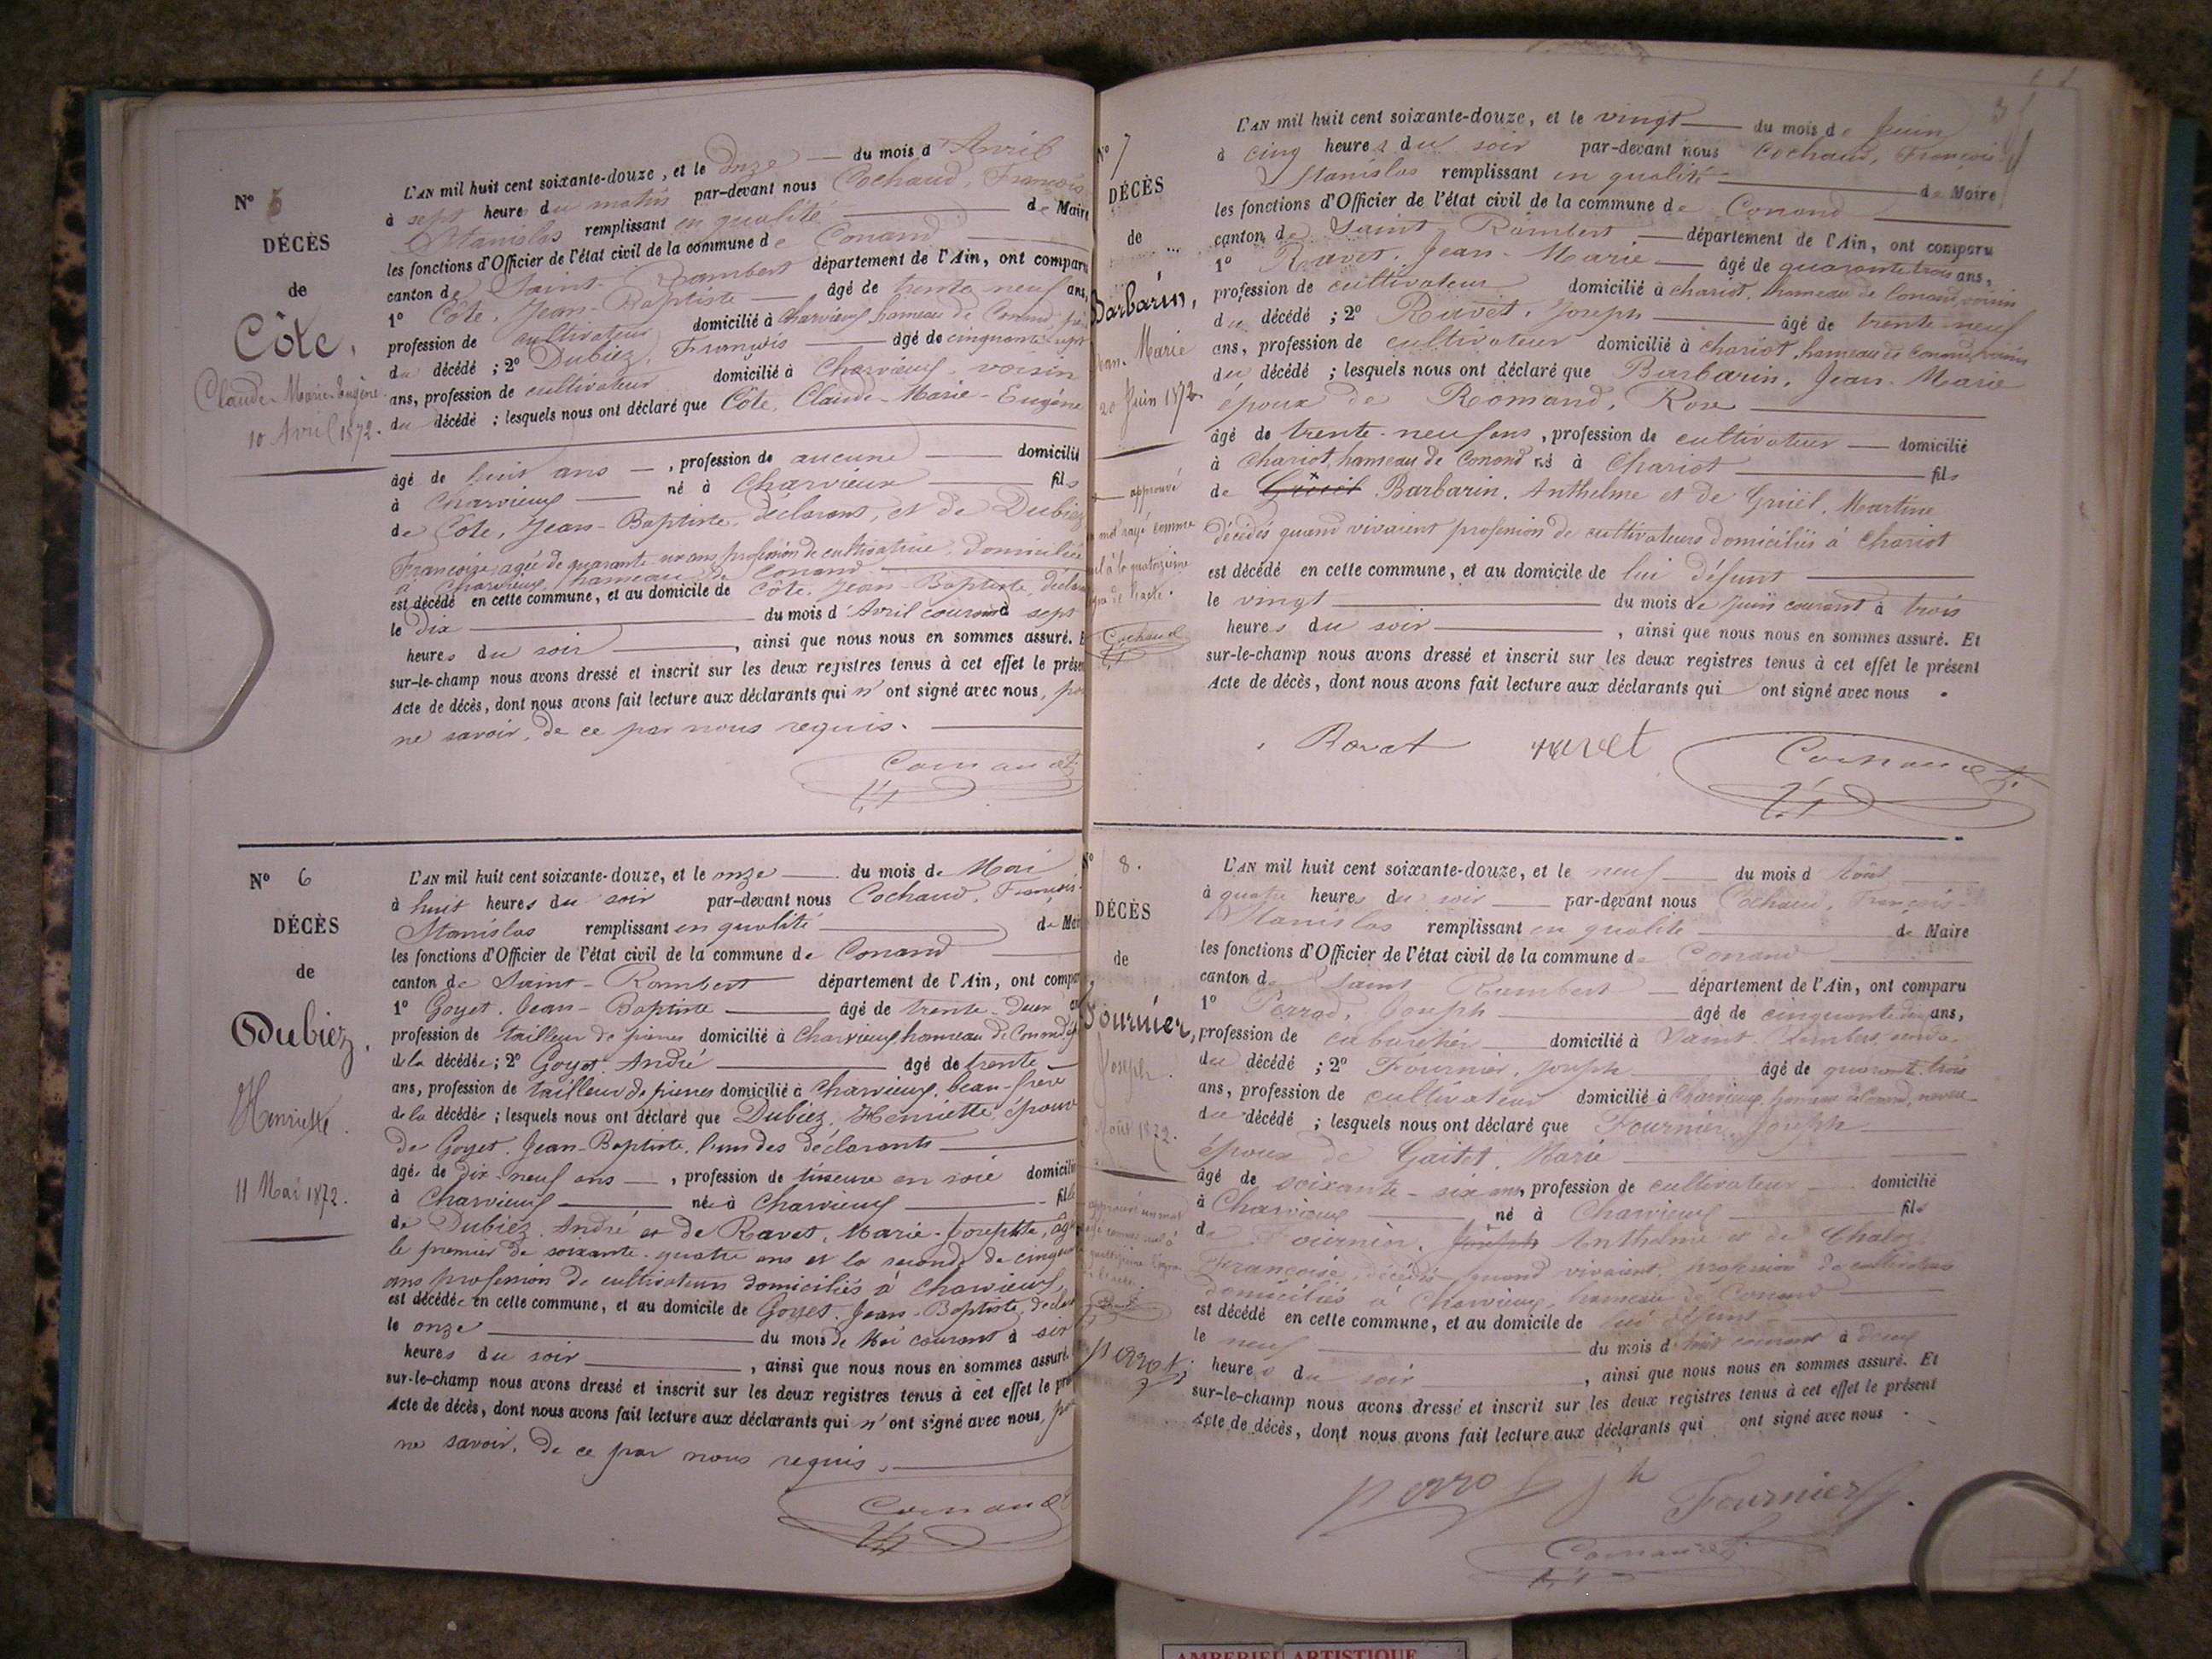 N° 5
DÉCÈS
de
Côte,
Claude-Marie-Eugène.
10 Avril 1872.
L'AN mil huit cent soixante-douze, et le onze — du mois d'Avril
à sept heures du matin par-devant nous Cochaud, François
Stanislas remplissant en qualité de Maire
les fonctions d'Officier de l'état civil de la commune de Conand
canton de Saint-Rambert département de l'Ain, ont comparu
1° Côte, Jean-Baptiste — âgé de trente neuf ans,
profession de cultivateur domicilié à Charvieux hameau de Conand, père
du décédé ; 2° Dubiez, François — âgé de cinquante sept
ans, profession de cultivateur domicilié à Charvieux, voisin
du décédé ; lesquels nous ont déclaré que Côte, Claude-Marie-Eugène
âgé de huit ans —, profession de aucune — domicilié
à Charvieux — né à Charvieux — fils
de Côte, Jean-Baptiste, déclarant, et de Dubiez
Françoise, agée de quarante un ans profession de cultivatrice, domiciliée
à Charvieux, hameau de Conand
est décédé en cette commune, et au domicile de Côte, Jean-Baptiste, déclar
le dix — du mois d'Avril courant à sept
heures du soir —, ainsi que nous nous en sommes assuré. E
sur-le-champ nous avons dressé et inscrit sur les deux registres tenus à cet effet le prése
Acte de décès, dont nous avons fait lecture aux déclarants qui n'ont signé avec nous, po
ne savoir, de ce par nous requis.
Cochaud
N° 6
DÉCÈS
de
Dubiez,
Henriette.
11 Mai 1872.
L'AN mil huit cent soixante-douze, et le onze — du mois de Mai
à huit heures du soir par-devant nous Cochaud, François
Stanislas remplissant en qualité — de Mai
les fonctions d'Officier de l'état civil de la commune de Conand
canton de Saint-Rambert département de l'Ain, ont compar
1° Goyet, Jean-Baptiste — âgé de trente-deux
profession de tailleur de pierres domicilié à Charvieux hameau de Conand
de la décédée ; 2° Goyet, André — âgé de trente —
ans, profession de tailleur de pierres domicilié à Charvieux, beau-frère
de la décédée ; lesquels nous ont déclaré que Dubiez, Henriette, épouse
de Goyet, Jean-Baptiste, l'un des déclarants
âgée de dix-neuf ans —, profession de tisseuse en soie domicili
à Charvieux — née à Charvieux — fille
de Dubiez, André et de Ravet, Marie-Josephte, âg
le premier de soixante-quatre ans et la seconde de cinqu
ans profession de cultivateurs domiciliés à Charvieux,
est décédée en cette commune, et au domicile de Goyet, Jean-Baptiste, déclar
le onze — du mois de Mai courant à six
heures du soir —, ainsi que nous nous en sommes assuré.
sur-le-champ nous avons dressé et inscrit sur les deux registres tenus à cet effet le pr
Acte de décès, dont nous avons fait lecture aux déclarants qui n'ont signé avec nous, po
ne savoir, de ce par nous requis.
Cochaud
31
N° 7
DÉCÈS
de
Barbarin,
Jean-Marie
20 Juin 1872.
approuvé
mot rayé comme
nul à la quatorzième
ligne de l'acte.
Cochaud
L'AN mil huit cent soixante-douze, et le vingt — du mois de Juin
à cinq heures du soir par-devant nous Cochaud, François
Stanislas remplissant en qualité — de Maire
les fonctions d'Officier de l'état civil de la commune de Conand
canton de Saint Rambert — département de l'Ain, ont comparu
1° Ravet, Jean-Marie — âgé de quarante trois ans,
profession de cultivateur domicilié à Chariot, hameau de Conand, voisin
du décédé ; 2° Ravet, Joseph — âgé de trente-neuf
ans, profession de cultivateur domicilié à Chariot, hameau de Conand, voisin
du décédé ; lesquels nous ont déclaré que Barbarin, Jean-Marie
époux de Romand, Rose
âgé de trente-neuf ans, profession de cultivateur — domicilié
à Chariot, hameau de Conand né à Chariot — fils
de Barbarin, Anthelme et de Gruël, Martine
décédés quand vivaient profession de cultivateurs domiciliés à Chariot
est décédé en cette commune, et au domicile de lui défunt
le vingt — du mois de Juin courant à trois
heures du soir —, ainsi que nous nous en sommes assuré. Et
sur-le-champ nous avons dressé et inscrit sur les deux registres tenus à cet effet le présent
Acte de décès, dont nous avons fait lecture aux déclarants qui ont signé avec nous .
Ravet ravet Cochaud
N° 8.
DÉCÈS
de
Fournier,
Joseph.
Août 1872.
L'AN mil huit cent soixante-douze, et le neuf — du mois d'Août
à quatre heures du soir — par-devant nous Cochaud, François-
Stanislas remplissant en qualité — de Maire
les fonctions d'Officier de l'état civil de la commune de Conand
canton de Saint Rambert — département de l'Ain, ont comparu
1° Perrad, Joseph — âgé de cinquante deux ans,
profession de cabaretier — domicilié à Saint-Rambert, gendre
du décédé ; 2° Fournier, Joseph — âgé de quarante trois
ans, profession de cultivateur domicilié à Charvieux, hameau de Conand, neveu
du décédé ; lesquels nous ont déclaré que Fournier, Joseph
époux de Gaitet, Marie
âgé de soixante-six ans, profession de cultivateur — domicilié
à Charvieux — né à Charvieux — fils
de Fournier, Joseph Anthelme et de Chaloz
Françoise, décédés, quand vivaient, profession de cultivateurs
domiciliés à Charvieux, hameau de Conand
est décédé en cette commune, et au domicile de lui défunt
le neuf — du mois d'Août courant à deux
heures du soir —, ainsi que nous nous en sommes assuré. Et
sur-le-champ nous avons dressé et inscrit sur les deux registres tenus à cet effet le présent
Acte de décès, dont nous avons fait lecture aux déclarants qui ont signé avec nous .
Fournier
Cochaud
AMBERIEU ARTISTIQUE